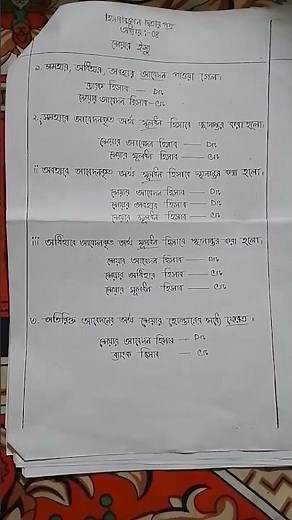 হিসাববিজ্ঞান দ্বিতীয় পত্র
অধ্যায় :- ০৪
শেয়ার ইস্যু
১. সমহার, অধিহার, অবহার আবেদন পাওয়া গেল।
ব্যাংক হিসাব — Dr.
শেয়ার আবেদন হিসাব — Cr.
২. i সমহারে আবেদনকৃত অর্থ মূলধন হিসাবে স্থানান্তর করা হলো।
শেয়ার আবেদন হিসাব — Dr.
শেয়ার মূলধন হিসাব — Cr.
ii অবহারে আবেদনকৃত অর্থ মূলধন হিসাবে স্থানান্তর করা হলো।
শেয়ার আবেদন হিসাব — Dr.
শেয়ার অবহার হিসাব — Dr.
শেয়ার মূলধন হিসাব — Cr.
iii অধিহারে আবেদনকৃত অর্থ মূলধন হিসাবে স্থানান্তর করা হলো।
শেয়ার আবেদন হিসাব — Dr.
শেয়ার অধিহার হিসাব — Cr.
শেয়ার মূলধন হিসাব — Cr.
৩. অতিরিক্ত আবেদনের অর্থ শেয়ার হোল্ডারের মাঝে ফেরত।
শেয়ার আবেদন হিসাব — Dr.
ব্যাংক হিসাব — Cr.